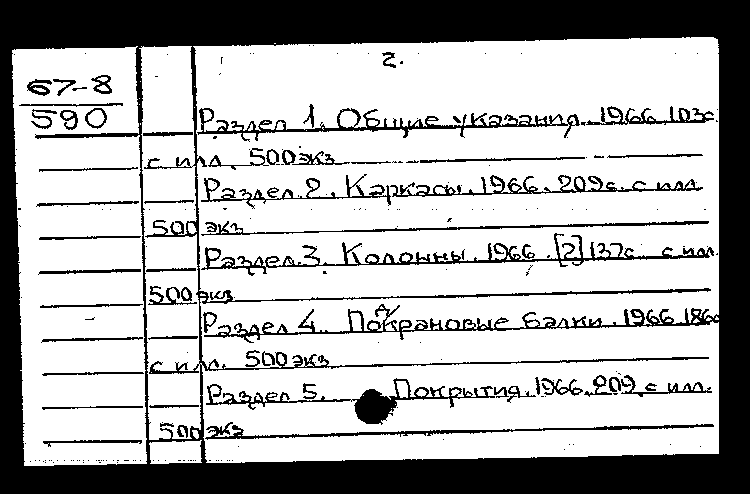 2.
67-8
590
Раздел 1. Общие указания. 1966 103с
с илл. 500 экз
Раздел.2. Каркасы. 1966. 209с. с илл
500 экз
Раздел.3. Колонны. 1966. [2] 137с с илл.
500 экз
Раздел 4. Подкрановые балки. 1966. 186с
с илл. 500 экз
Раздел 5. Покрытия. 1966. 209. с илл.
500 экз